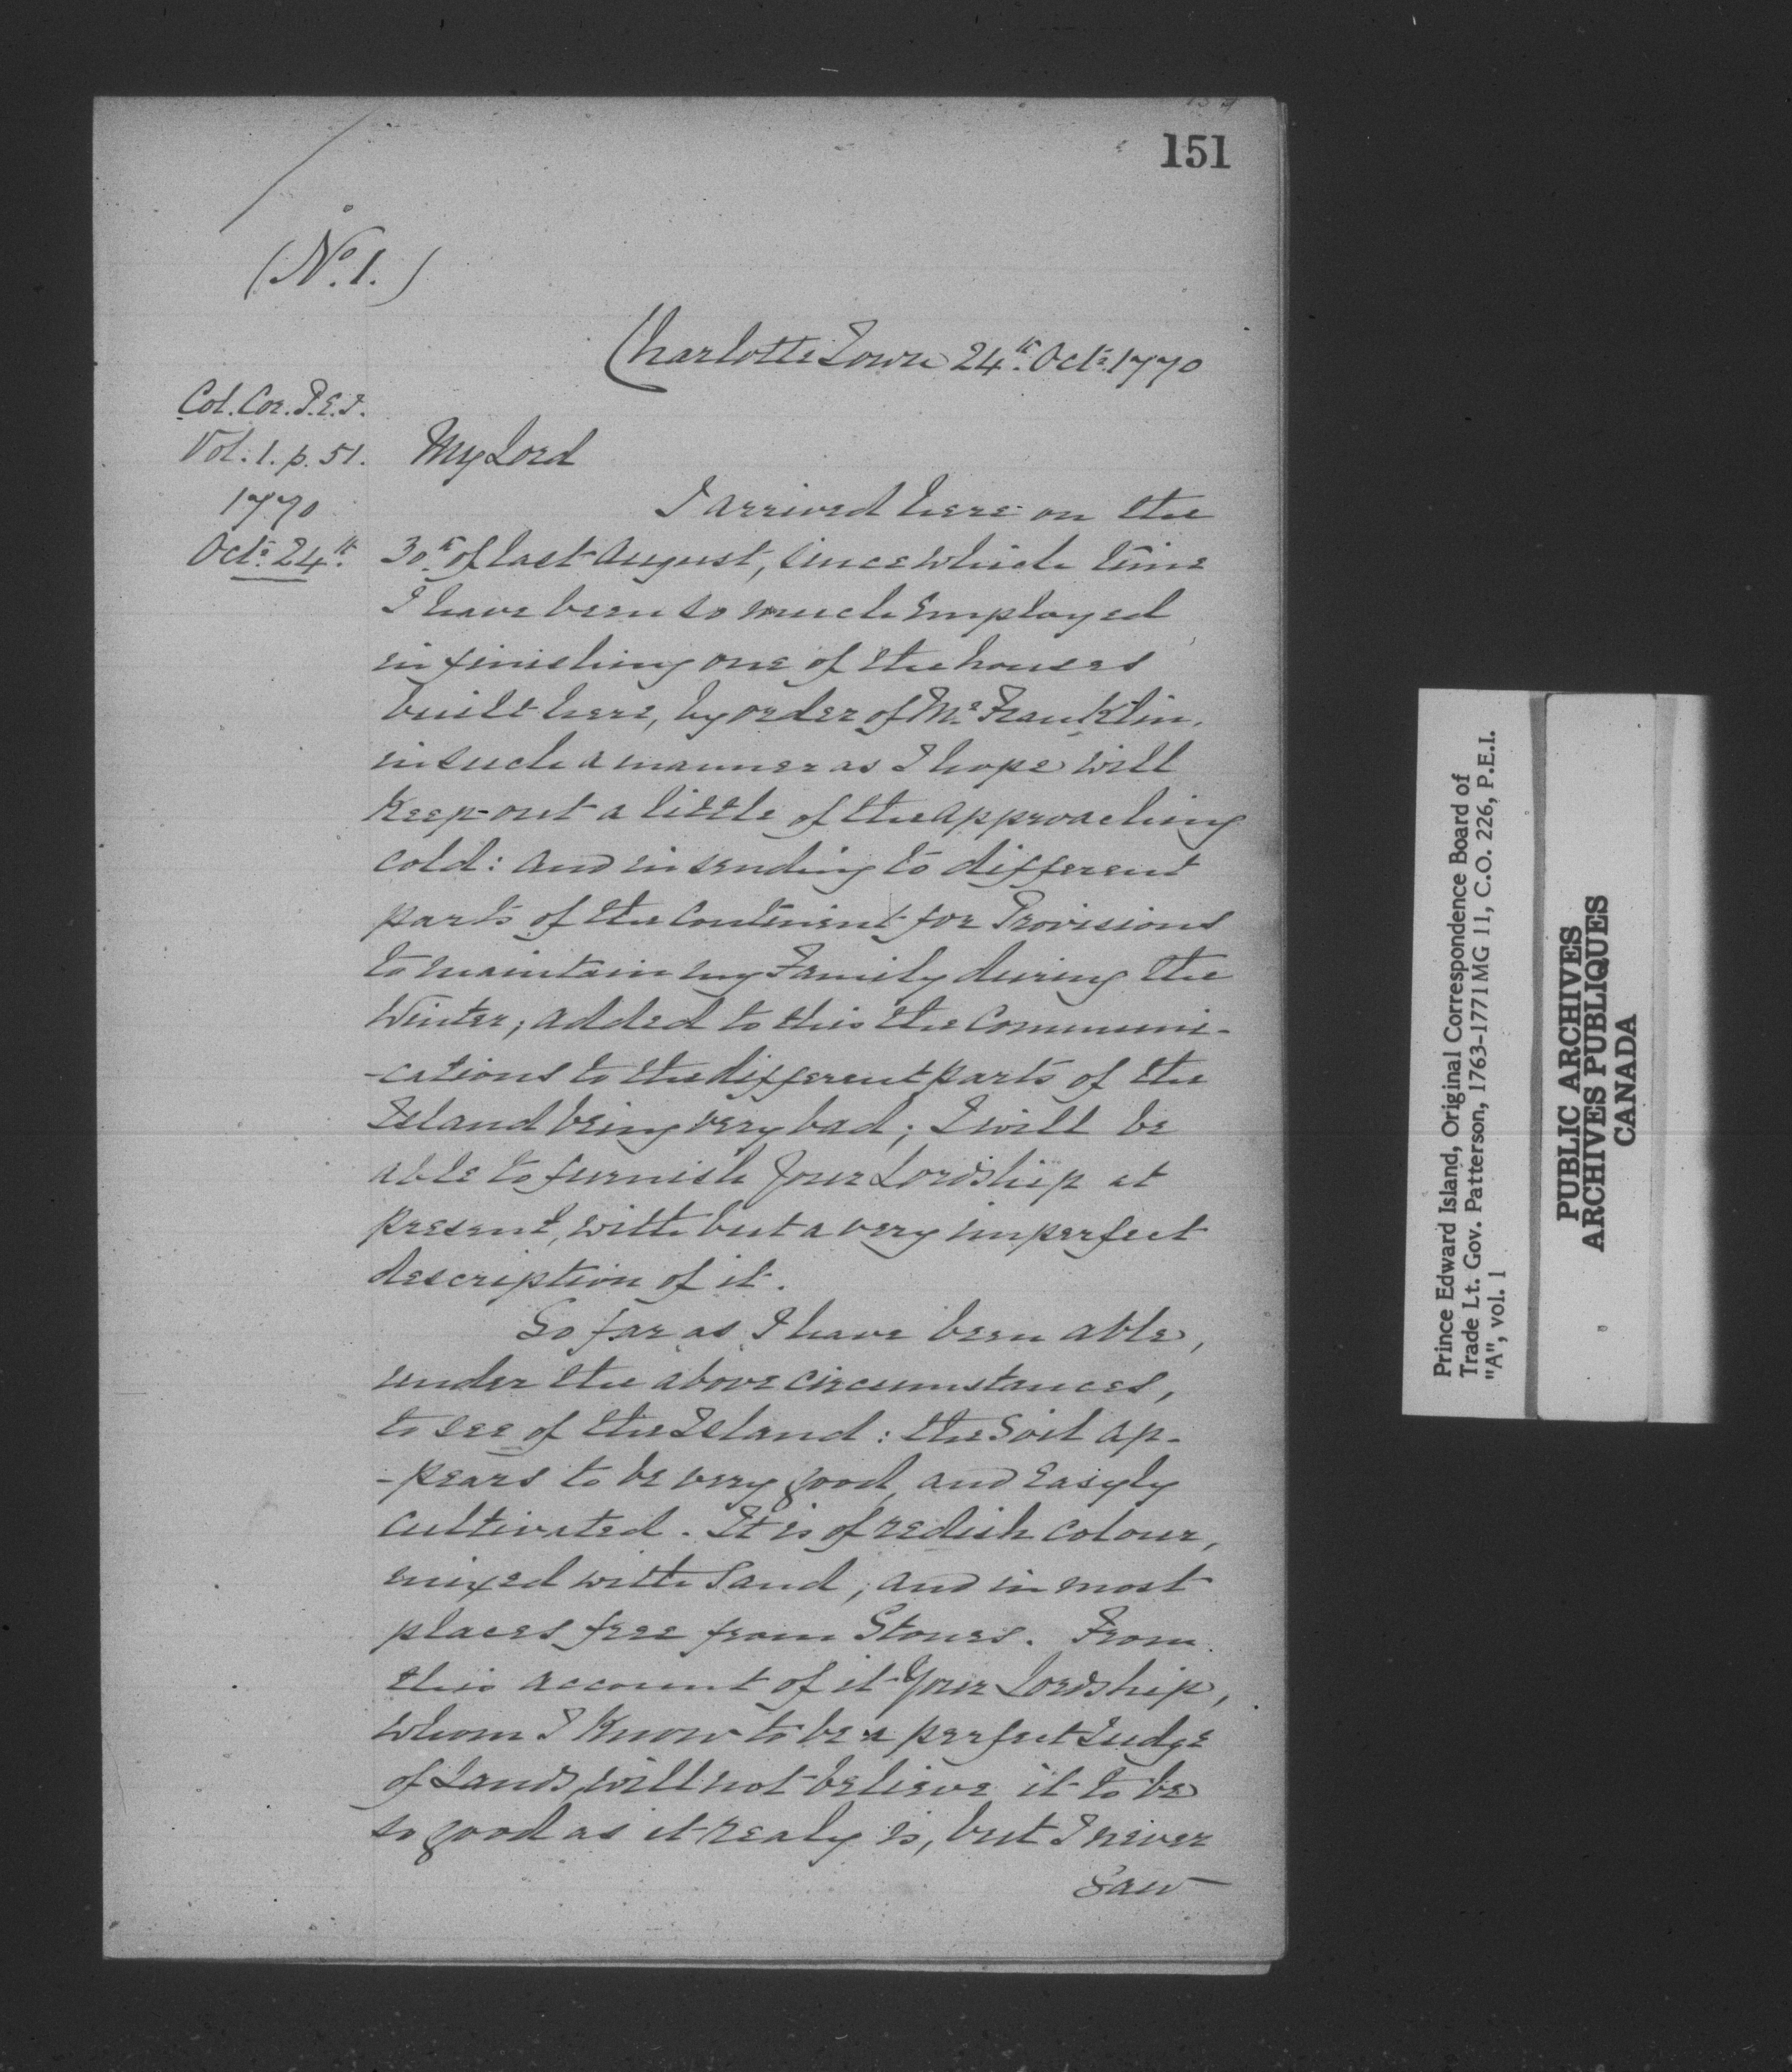 151
(No. 1.)
Charlotte Town 24th. Octr. 1770
Col. Cor. P.E.I.
Vol. 1. p. 51.
1770
Octr. 24th.
My Lord
I arrived here on the
30th. of last August, since which time
I have been so much Employed
in finishing one of the houses
built here, by order of Mr. Franklin,
in such a manner as I hope will
Keep-out a little of the approaching
cold: and in sending to different
parts of the Continent for Provisions
to maintain my Family during the
Winter; added to this the Communi-
-cations to the different parts of the
Island being very bad; I will be
able to furnish Your Lordship at
present, with but a very imperfect
description of it.
So far as I have been able,
under the above circumstances,
to see of the Island: the Soil ap-
-pears to be very good, and Easyly
Cultivated. It is of redish Colour,
mixed with Sand; and in most
places free from Stones. From
this account of it Your Lordship,
whom I Know to be a perfect Judge
of Lands, will not believe it to be
so good as it realy is, but I never
Saw
Prince Edward Island, Original Correspondence Board of
Trade Lt. Gov. Patterson, 1763-1771 MG 11, C.O. 226, P.E.I.
"A", vol. 1
PUBLIC ARCHIVES
ARCHIVES PUBLIQUES
CANADA